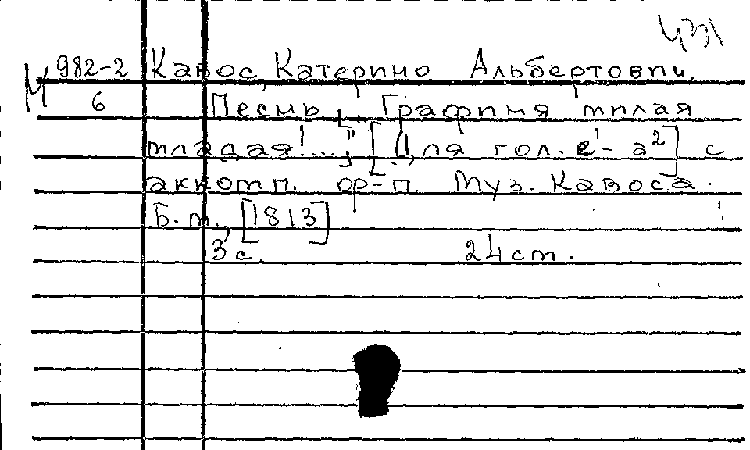 431
М 982-2 Кавос, Катерино Альбертович.
6 Песнь [„Графиня милая
младая!..."] [Для гол. e¹-a²] с
аккомп. ф-п. Муз. Кавоса.
Б.м., [1813]
3 с. 24 см.